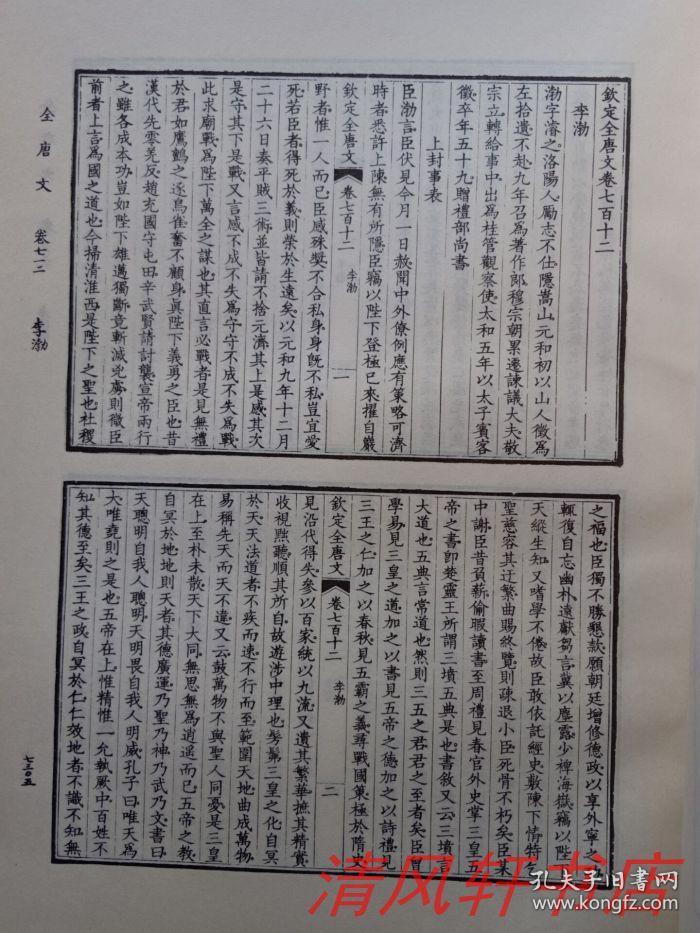 欽定全唐文卷七百十二
李渤
渤字濬之洛陽人勵志不仕隱嵩山元和初以山人徵爲
左拾遺不赴九年召爲著作郎穆宗朝累遷諫議大夫敬
宗立轉給事中出爲桂管觀察使太和五年以太子賓客
徵卒年五十九贈禮部尚書
上封事表
臣渤言臣伏見今月一日赦開中外僚例應有策略可濟
時者悉許上陳無有所隱臣竊以陛下登極已來擢自巖
欽定全唐文 卷七百十二 李渤 一
野者惟一人而已臣感殊奬不合私身身旣不私豈宜愛
死若臣者得死於義則榮於生遠矣以元和九年十二月
二十六日奏平賊三術並皆請不捨元濟其上是感其次
是守其下是戰又言感不成不失爲守守不成不失爲戰
此求廟戰爲陛下萬全之謀也其直言必戰者是見無禮
於君如鷹鸇之逐鳥雀奮不顧身眞陛下義勇之臣也昔
漢代先零羌反趙充國守屯田辛武賢請討襲宣帝兩行
之雖各成本功豈如陛下雄邁獨斷竟斬滅兇虜則微臣
前者上言爲國之道也今掃清淮西是陛下之聖也杜稷
之福也臣獨不勝懇款願朝廷增修德政以享外寧之
輒復自忘幽朴遠獻芻言冀以塵露少裨海嶽竊以陛
天縱生知又嗜學不倦故臣敢依託經史敷陳下情特乞
聖慈容其迂繁曲賜終覽則疎退小臣死骨不朽矣臣某
中謝臣昔負薪偷暇讀書至周禮見春官外史掌三皇五
帝之書卽楚靈王所謂三墳五典是也書敘又云三墳言
大道也五典言常道也然則三五之君君之至者矣臣嘗
學易見三皇之道加之以書見五帝之德加之以詩禮見
三王之仁加之以春秋見五霸之義尋戰國策極於隋史
欽定全唐文 卷七百十二 李渤 二
見沿代得失參以百家統以九流又遺其繁華摭其精實
收視黜聽順其所自故遊涉中理也髣髴三皇之化自冥
於天天法道者不疾而速不行而至範圍天地曲成萬物
易稱先天而天不違又云鼓萬物不與聖人同憂是三皇
在上至朴未散天下大同無思無爲逍遥而已五帝之教
自冥於地地則天者其德廣運乃聖乃神乃武乃文書曰
天聰明自我人聰明天明畏自我人明威孔子曰唯天爲
大唯堯則之是也五帝在上惟精惟一允執厥中百姓不
知其德至矣三王之政自冥於仁仁效地者不識不知無
全唐文 卷七一二 李渤
七三〇五
清风轩书店
孔夫子旧书网
www.kongfz.com